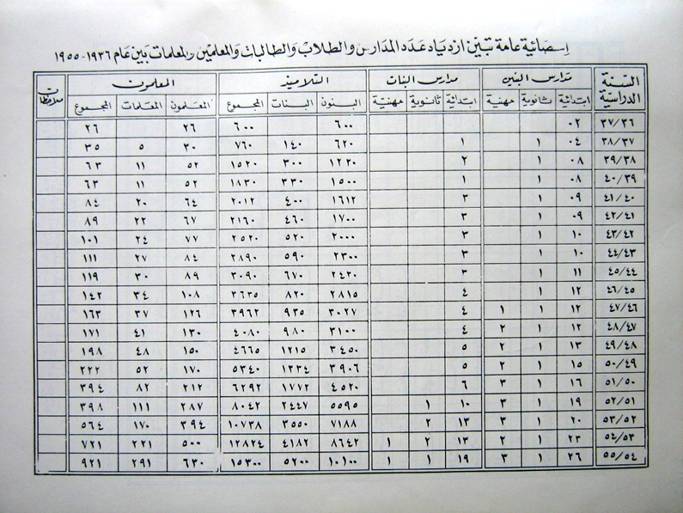 إحصائية عامة تبين ازدياد عدد المدارس والطلاب والطالبات والمعلمين والمعلمات بين عام ١٩٣٦-١٩٥٥
السنة الدراسية مدارس البنين مدارس البنات التلاميذ المعلمون ملاحظات
ابتدائية ثانوية مهنية ابتدائية ثانوية مهنية البنون البنات المجموع المعلمون المعلمات المجموع
٣٧/٣٦ ٠٢ ٦٠٠ ٦٠٠ ٢٦ ٢٦
٣٨/٣٧ ٠٤ ١ ١ ٦٢٠ ١٤٠ ٧٦٠ ٣٠ ٥ ٣٥
٣٩/٣٨ ٠٨ ١ ٢ ١٢٢٠ ٣٠٠ ١٥٢٠ ٥٢ ١١ ٦٣
٤٠/٣٩ ٠٨ ١ ١ ١٥٠٠ ٣٣٠ ١٨٣٠ ٥٢ ١١ ٦٣
٤١/٤٠ ٠٩ ١ ٣ ١٦١٢ ٤٠٠ ٢٠١٢ ٦٤ ٢٠ ٨٤
٤٢/٤١ ٠٩ ١ ٣ ١٧٠٠ ٤٦٠ ٢١٦٠ ٦٧ ٢٢ ٨٩
٤٣/٤٢ ١٠ ١ ٣ ٢٠٠٠ ٥٢٠ ٢٥٢٠ ٧٧ ٢٤ ١٠١
٤٤/٤٣ ١٠ ١ ٣ ٢٣٠٠ ٥٩٠ ٢٨٩٠ ٨٤ ٢٧ ١١١
٤٥/٤٤ ١١ ١ ٣ ٢٤٢٠ ٦٧٠ ٣٠٩٠ ٨٩ ٣٠ ١١٩
٤٦/٤٥ ١٢ ١ ٤ ٢٨١٥ ٨٢٠ ٣٦٣٥ ١٠٨ ٣٤ ١٤٢
٤٧/٤٦ ١٢ ١ ١ ٤ ٣٠٢٧ ٩٣٥ ٣٩٦٢ ١٢٦ ٣٧ ١٦٣
٤٨/٤٧ ١٢ ١ ٢ ٤ ٣١٠٠ ٩٨٠ ٤٠٨٠ ١٣٠ ٤١ ١٧١
٤٩/٤٨ ١٣ ١ ٢ ٥ ٣٤٥٠ ١٢١٥ ٤٦٦٥ ١٥٠ ٤٨ ١٩٨
٥٠/٤٩ ١٥ ١ ٢ ٥ ٣٩٠٦ ١٢٣٤ ٥٣٤٠ ١٧٠ ٥٢ ٢٢٢
٥١/٥٠ ١٦ ١ ٣ ٦ ٤٥٢٠ ١٧٧٢ ٦٢٩٢ ٢١٢ ٨٢ ٣٩٤
٥٢/٥١ ١٩ ١ ٣ ١٠ ١ ٥٥٩٥ ٢٤٤٧ ٨٠٤٢ ٢٨٧ ١١١ ٣٩٨
٥٣/٥٢ ٢٠ ١ ٣ ١٣ ٢ ٧١٨٨ ٣٥٥٠ ١٠٧٣٨ ٣٩٤ ١٧٠ ٥٦٤
٥٤/٥٣ ٢٣ ١ ٢ ١٣ ٢ ١ ٨٦٤٢ ٤١٨٢ ١٢٨٢٤ ٥٠٠ ٢٢١ ٧٢١
٥٥/٥٤ ٢٦ ١ ٣ ١٩ ١ ١ ١٠١٠٠ ٥٢٠٠ ١٥٣٠٠ ٦٣٠ ٢٩١ ٩٢١